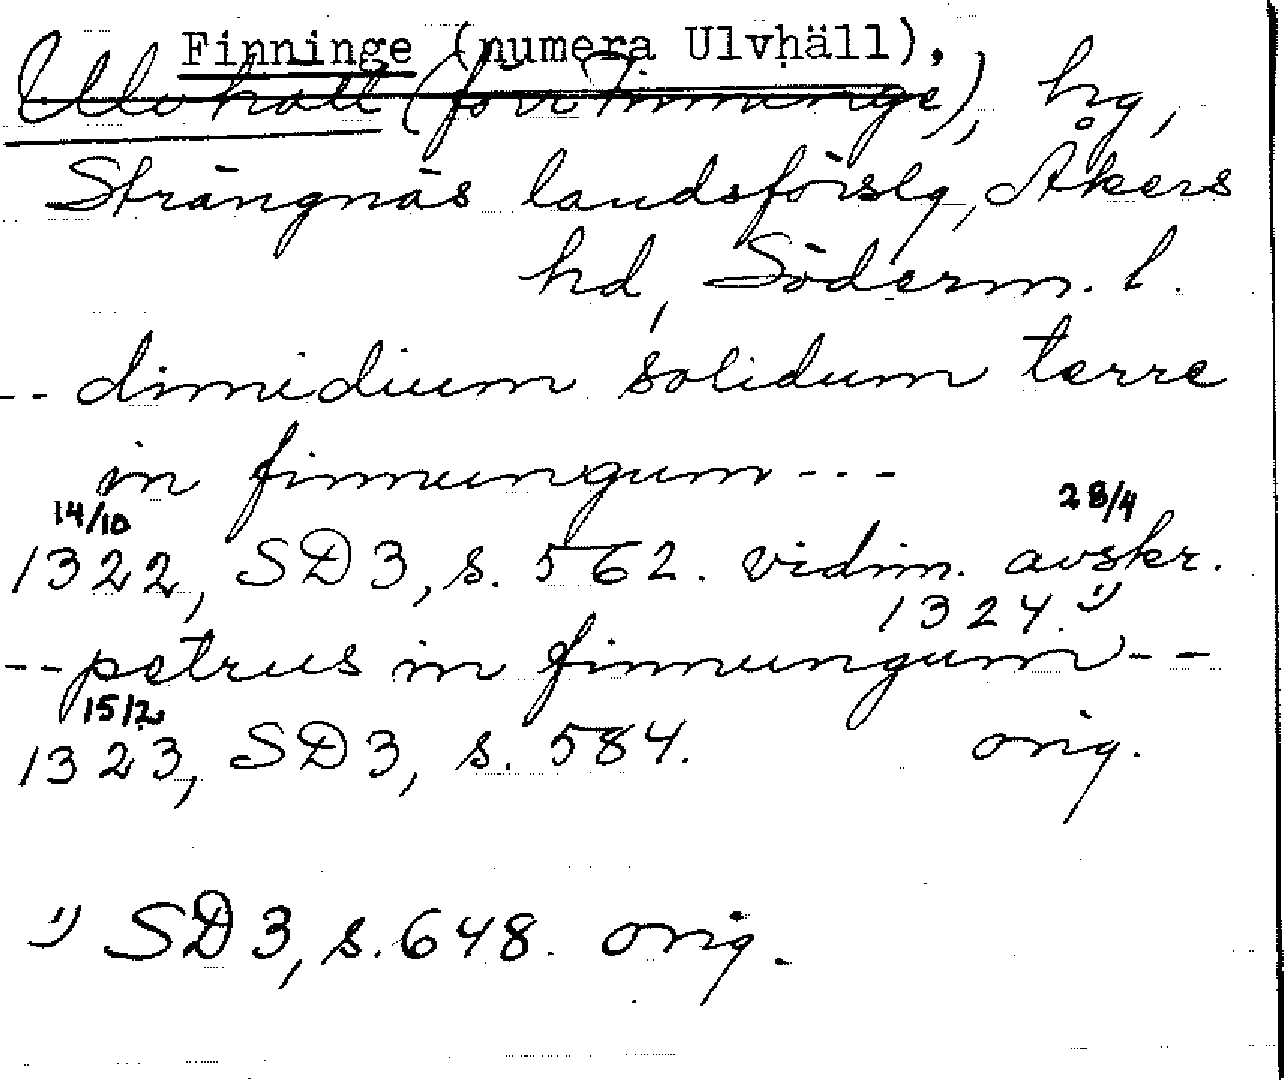 Finninge (numera Ulvhäll).
Ulvhäll (förr Finninge), hg,
Strängnäs landsförslg, Åkers
hd, Söderm. l.
-- dimidium solidum terre
in finnungum ---
14/10 28/4
1322, SD3, s. 562. vidim. avskr.
1324. 1)
-- petrus in finnungum --
15/2
1323, SD3, s. 584. orig.
1) SD3, s. 648. orig.